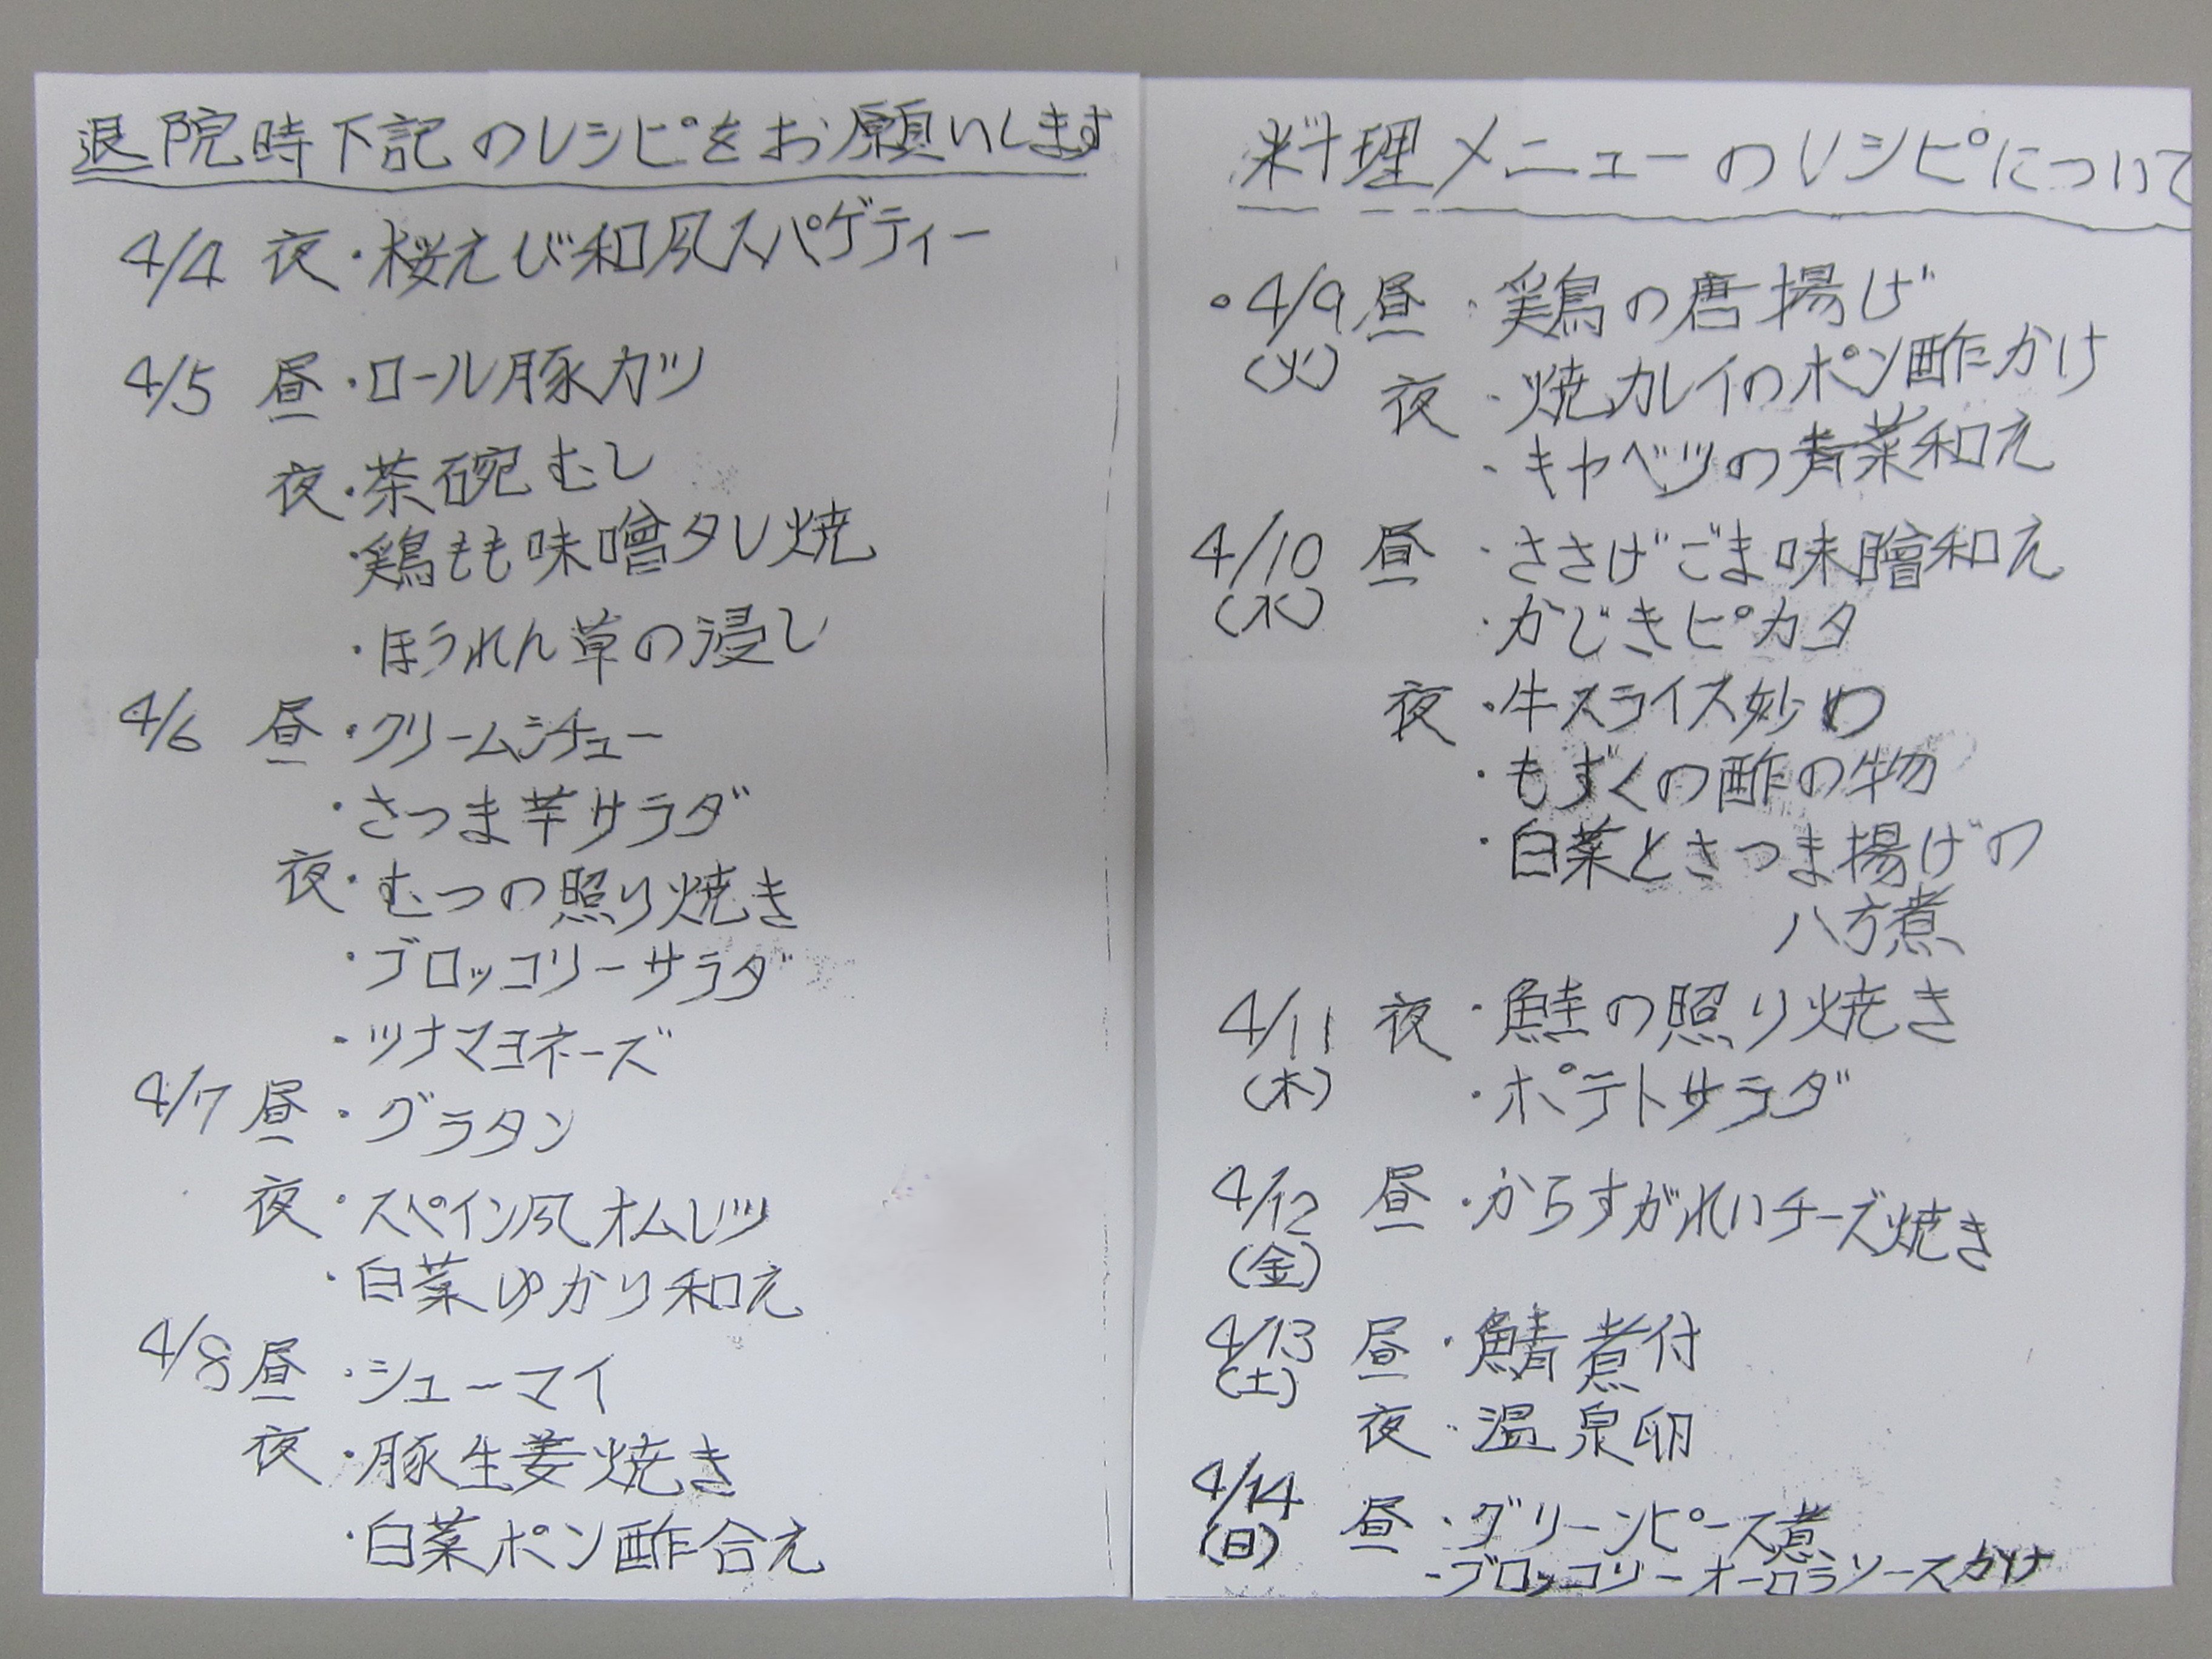 退院時下記のレシピをお願いします
4/4 夜・桜えび和风スパゲティー
4/5 昼・ロール豚カツ
夜・茶碗むし
・鶏もも味噌タレ焼
・ほうれん草の浸し
4/6 昼・クリームシチュー
・さつま芋サラダ
夜・むつの照り焼き
・ブロッコリーサラダ
・ツナマヨネーズ
4/7 昼・グラタン
夜・スペイン风オムレツ
・白菜ゆかり和え
4/8 昼・シューマイ
夜・豚生姜焼き
・白菜ポン酢合え
料理メニューのレシピについて
・4/9 昼・鶏の唐揚げ
(火)
夜・焼カレイのポン酢かけ
・キャベツの青菜和え
4/10 昼・ささげごま味膾和え
(水)
・かじきピカタ
夜・牛スライス妙め
・もずくの酢の物
・白菜とさつま揚げの
八方煮
4/11 夜・鮭の照り焼き
(木)
・ポテトサラダ
4/12 昼・からすがれいチーズ焼き
(金)
4/13 昼・鯖煮付
(土)
夜・温泉卵
4/14 昼・グリーンピース煮
(日)
・ブロッコリーオーロラソースかけ